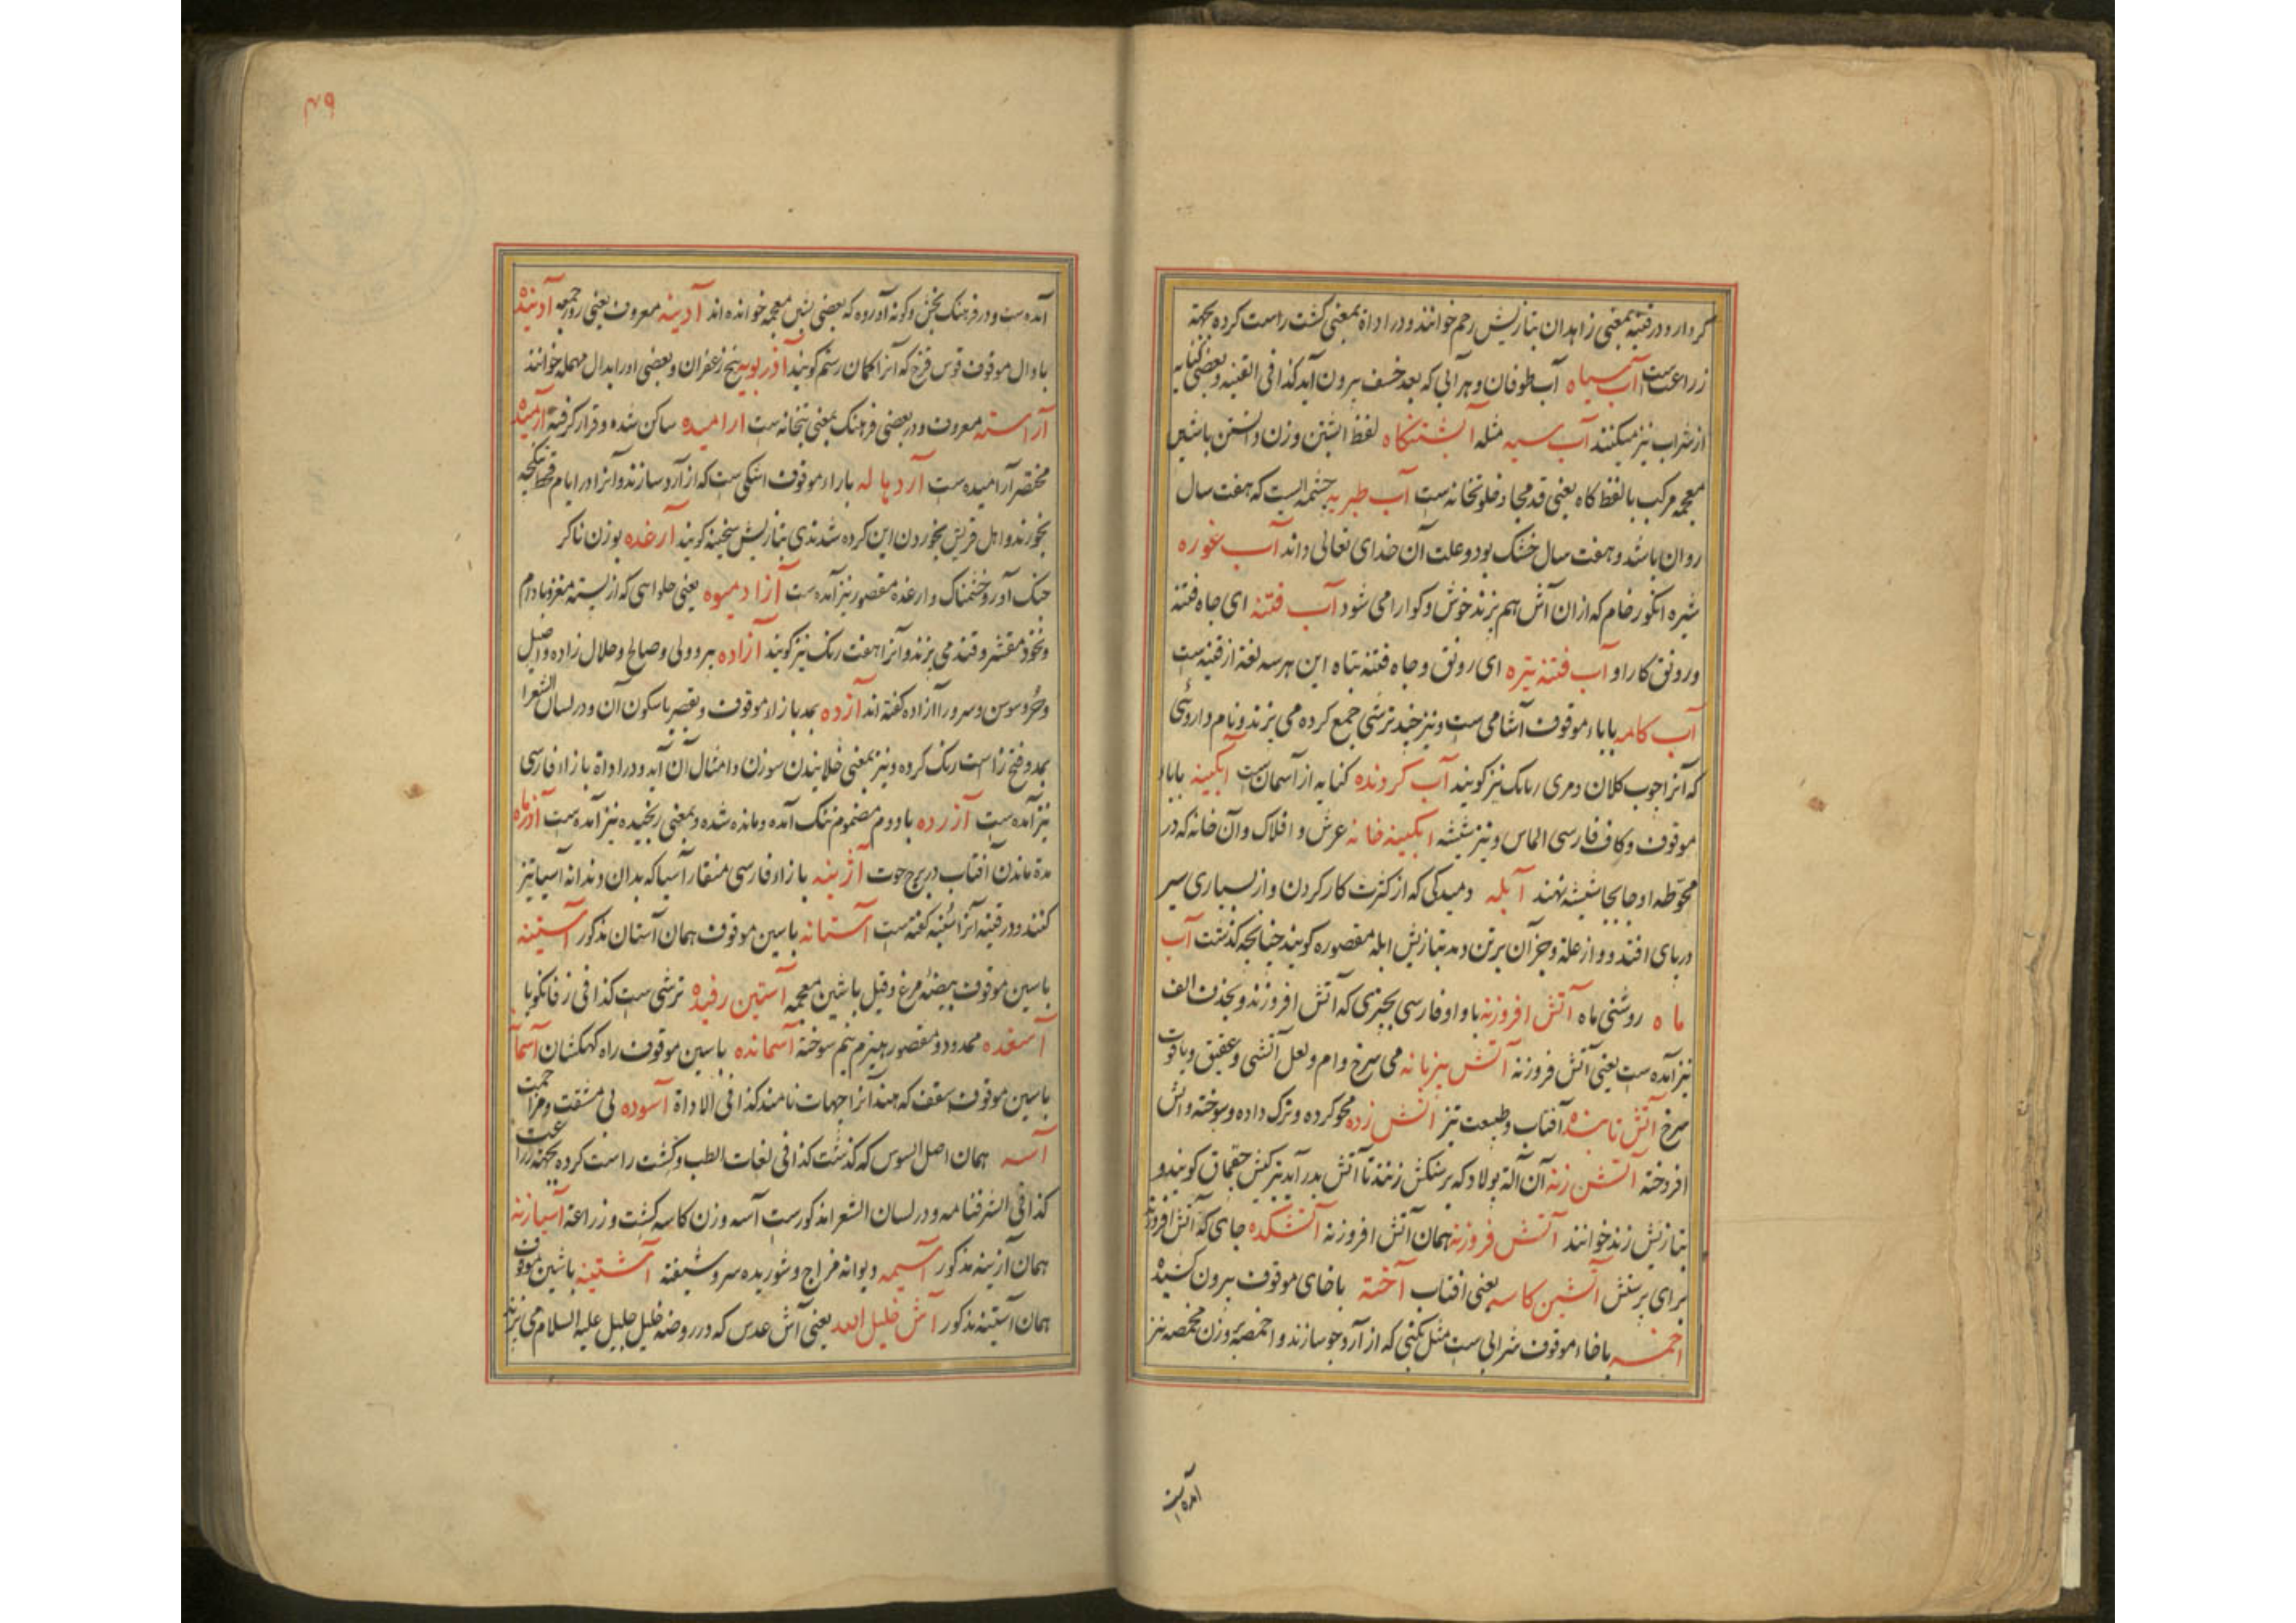 کر دارد و در قنیه بمعنی زاهدان بتازیش رحم خوانند و در اداة بمعنی کشت راست کرده بجهة
زراعت ست آب سیاه آب طوفان و هر آبی که بعد خسف بیرون آید کذا فی القنیه و بعضی کنایه
از شراب نیز میکنند آب سیه مثله آبشتنکاه لفظ ابشتن وزن دانستن باشین
معجمه مرکب بالفظ کاه یعنی قدمجا و خلوتخانه ست آب طبریه چشمه ایست که هفت سال
روان باشد و هفت سال خشک بود و علت آن خدای تعالی داند آب غوره
شیره انکور خام که ازان آش هم پزند خوش و کوارا می شود آب فتنه ای جاه فتنه
و رونق کار او آب فتنه تیره ای رونق و جاه فتنه تباه این هر سه لغة از قنیه ست
آب کامه باباء موقوف آشامی ست و نیز چند ترشی جمع کرده می پزند و نام داروئی
که آنرا جوب کلان و مری نیز کویند آب کردنده کنایه از آسمان ست ابکینه بابا
موقوف و کاف فارسی الماس و نیز شیشه ابکینه خانه عرش و افلاک و آن خانه که در
محوطه او جابجا شیشه نهند آبله دمیدکی که از کثرت کار کردن و از بسیاری سیر
در پای افتد و از علة و جز آن بر تن دمد بتازیش ابله مقصوره کویند چنانچه کذشت آب
ماه روشنی ماه آتش افروزنه باواو فارسی چیزی که آتش افروزند و بحذف الف
نیز آمده ست یعنی آتش فروزنه آتش بیزبانه می سرخ وام و لعل آتشی و عقیق و یاقوت
سرخ آتش تابنده آفتاب و طبیعت تیز آتش زده محو کرده و ترک داده و سوخته و آتش
افروخته آتش زنه آن آلة پولاد که بر سنکش زنند تا آتش بدر آید نیز کیش چقماق کویند و
بتازیش زند خوانند آتش فروزنه همان آتش افروزنه آتشکده جای که آتش افروزند
برای پرستش آتشین کاسه یعنی افتاب آخته باخای موقوف بیرون کشیده
اخمسه باخاء موقوف شرابی ست مثل بکنی که از آرد جو سازند و اخمصه وزن مخمصه نیز
آمده ست
۴۹
آمده ست و در فرهنک بخش دکونه آورده که بعضی بشین معجمه خوانده اند آدینه معروف یعنی روز جمعه آدینده
بادال موقوف قوس قزح که آنرا کمان رستم کویند آذربویه بیخ زعفران و بعضی اورا بدال مهمله خوانند
آراسته معروف و در بعضی فرهنک بمعنی بتخانه ست ارامیده ساکن شده و قرار کرفته آرمیده
مختصر آرامیده ست آردهاله باراء موقوف اشکی ست که از آرد سازند و آنرا در ایام قحط
بخورند و اهل قریش بخوردن این کرده شدندی بتازیش سخینه کویند آرغده بوزن ناکر
جنک آور و خشمناک و ارغده مقصور نیز آمده ست آزادمیوه یعنی حلوایی که از پسته مغز و بادام
و نخود مقشر و قند می پزند و آنرا هفت رنک نیز کویند آزاده پیر و ولی و صالح و حلال زاده و اصیل
و حر و سوسن و سرو را آزاده کفته اند آزده بمد بازاء موقوف و بقصر باسکون آن و در لسان الشعرا
بمد و فتح زا است رنک کرده و نیز بمعنی خلانیدن سوزن و امثال آن آید و در اداة بازاء فارسی
نیز آمده ست آزرده بادوم مضموم تنک آمده و مانده شده و بمعنی رنجیده نیز آمده ست آذرماه
مدة ماندن آفتاب در برج حوت آژینه بازاء فارسی منقار آسیا که بدان دندانه آسیا تیز
کنند و در قنیه آنرا کفته ست آستانه باسین موقوف همان آستان مذکور آستینه
باسین موقوف بیضه مرغ و قیل باشین معجمه آستین رفیده ترشی ست کذا فی زفانکویا
آسغده ممدود و مقصور هیزم نیم سوخته آسمانده باسین موقوف راه کهکشان آسمانه
باسین موقوف سقف که هند آنرا چهات نامند کذا فی الاداة آسوده بی مشقت و مزاحمت
آسه همان اصل السوس که کذشت کذا فی لغات الطب و کشت راست کرده بجهة زراعت
کذا فی الشرفنامه و در لسان الشعرا مذکور ست آسه وزن کاسه کشت و زراعة آسیازنه
همان آژینه مذکور آسیمه دیوانه مزاج و شوریده سر و شیفته آشتینه باشین موقوف
همان آستینه مذکور آش خلیل الله یعنی آش عدس که در روضه خلیل جلیل علیه السلام می پزند